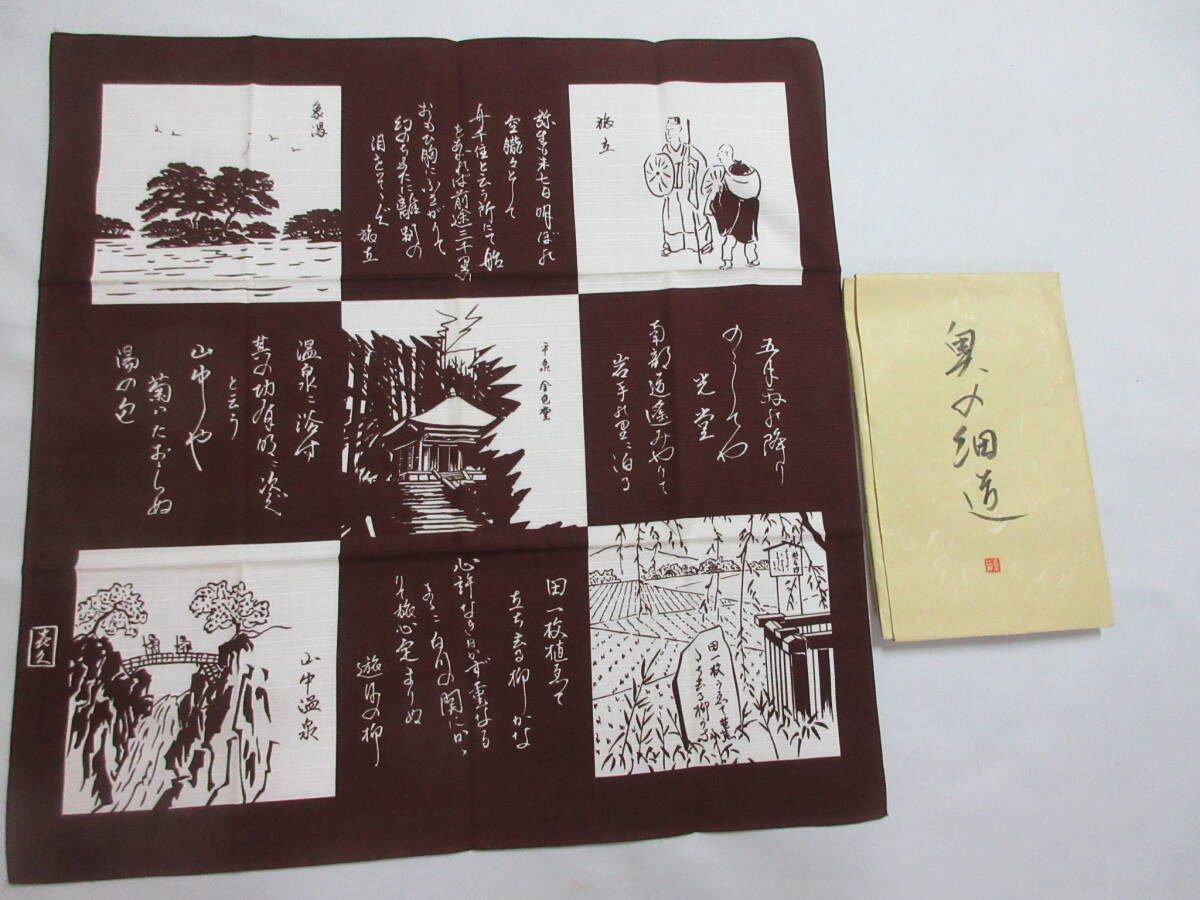 旅立
弥生末七日明ぼの
空朧々として
千住と云う所にて船
をあがれば前途三千里
おもひ胸にふさがりて
幻のちまたに離別の
泪をそそぐ
旅立
象潟
五月雨の降り
のこしてや
光堂
南部道遥みやりて
岩手の里に泊る
平泉金色堂
温泉に浴す
其の功有明に次ぐ
と云う
山中や
菊はたおらぬ
湯の匂
田一枚植ゑて
立ち去る柳かな
心許なき日かず重なる
まゝに白川の関にかゝ
りて旅心定まりぬ
遊行の柳
田一枚うゑて
立ち去る柳かな
山中温泉
奥の細道